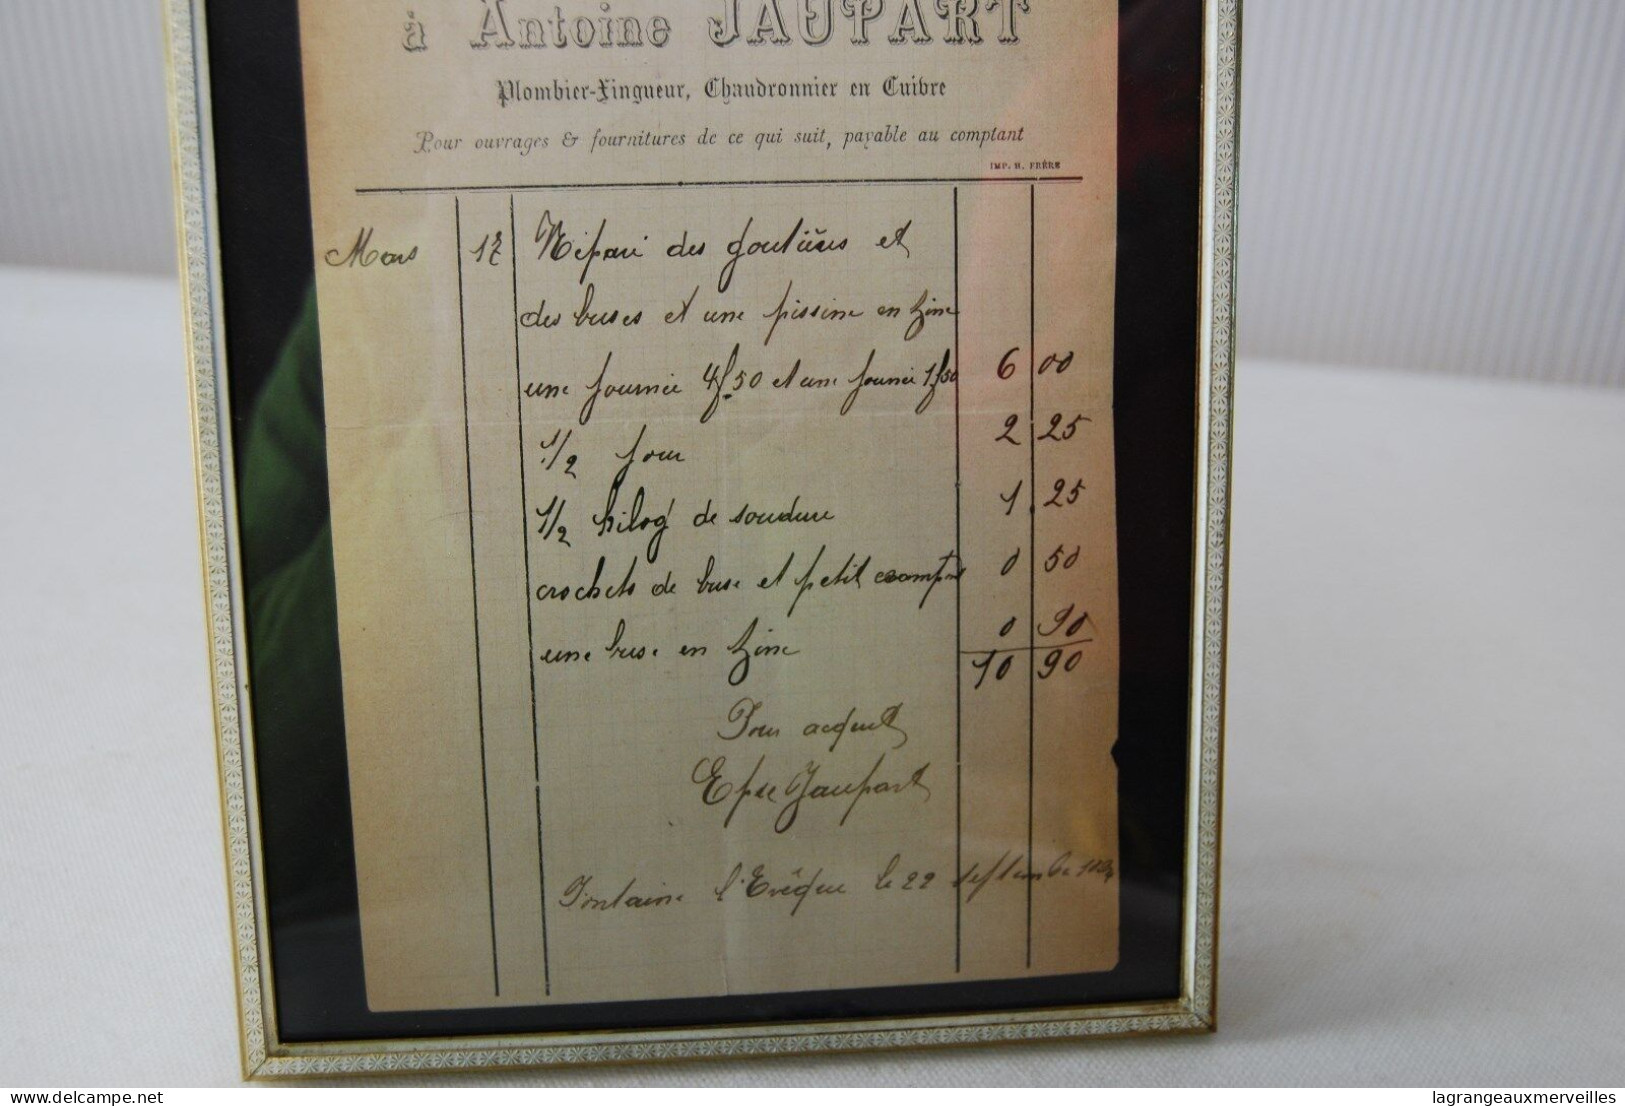 à Antoine JAUPART
Plombier-Zingueur, Chaudronnier en Cuivre
Pour ouvrages & fournitures de ce qui suit, payable au comptant
IMP. H. FRÈRE
Mars 17 Réparé des goutières et
des buses et une pissine en zinc
une journée 4f.50 et une journée 1f50 6 00
1/2 jour 2 25
1/2 kilog de soudure 1 25
crochets de buse et petit 0 50
une buse en zinc 0 90
10 90
Pour acquit
Epse Jaupart
Fontaine l'Evêque le 22 septembre
delcampe.net
lagrangeauxmerveilles